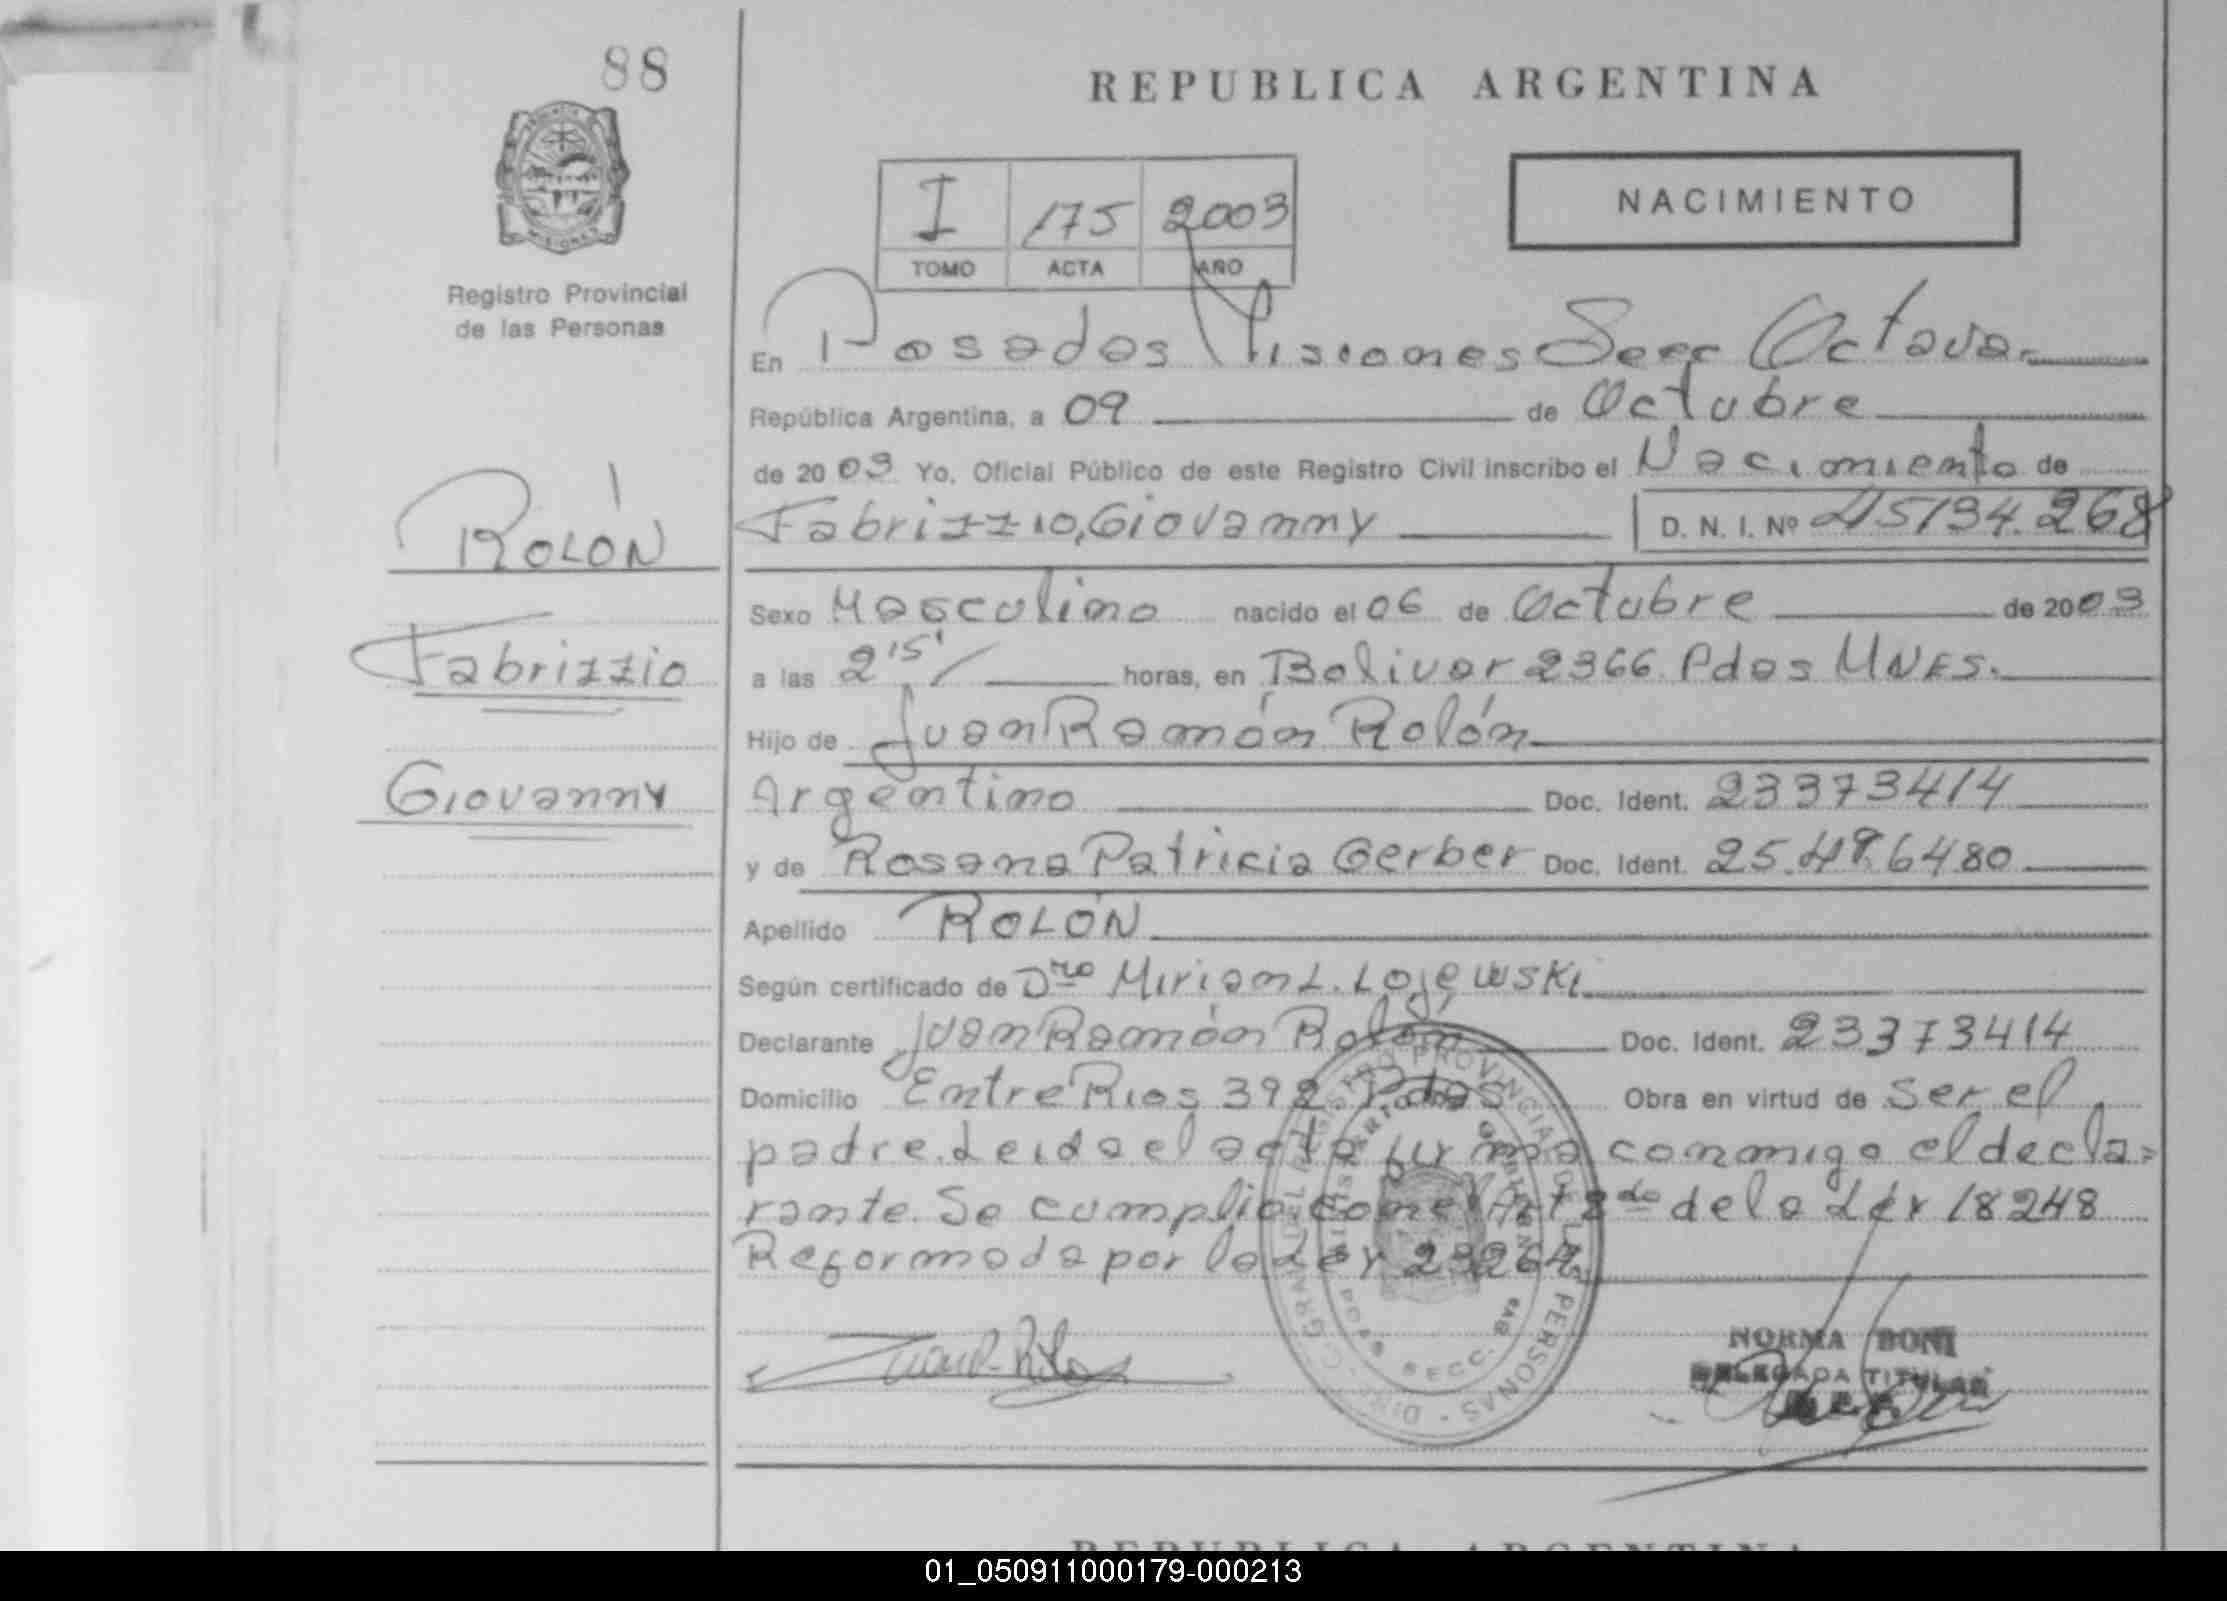 88
REPUBLICA ARGENTINA
MISIONES
Registro Provincial
de las Personas
I 175 2003
TOMO ACTA AÑO
NACIMIENTO
En Posadas Misiones Secc Octava
República Argentina, a 09 de Octubre
de 2003 Yo, Oficial Público de este Registro Civil inscribo el Nacimiento de
ROLÓN
Fabrizzio, Giovanny D. N. I. Nº 45134.268
Sexo Masculino nacido el 06 de Octubre de 2003
Fabrizzio
a las 2,15' horas, en Bolivar 2366 Pdas MNES.
Hijo de Juan Ramón Rolón
Giovanny
Argentino Doc. Ident. 23373414
y de Rosana Patricia Gerber Doc. Ident. 25.486480
Apellido ROLÓN
Según certificado de Dra Miriam L. Lojewski
Declarante Juan Ramón Rolón Doc. Ident. 23373414
Domicilio Entre Rios 392 Pdas Obra en virtud de ser el
padre. Leida el acta firma conmigo el decla=
rante. Se cumplio con el Art 2do de la Ley 18248
Reformada por la Ley 23264
NORMA BONI
DELEGADA TITULAR
REPUBLICA ARGENTINA
01_050911000179-000213